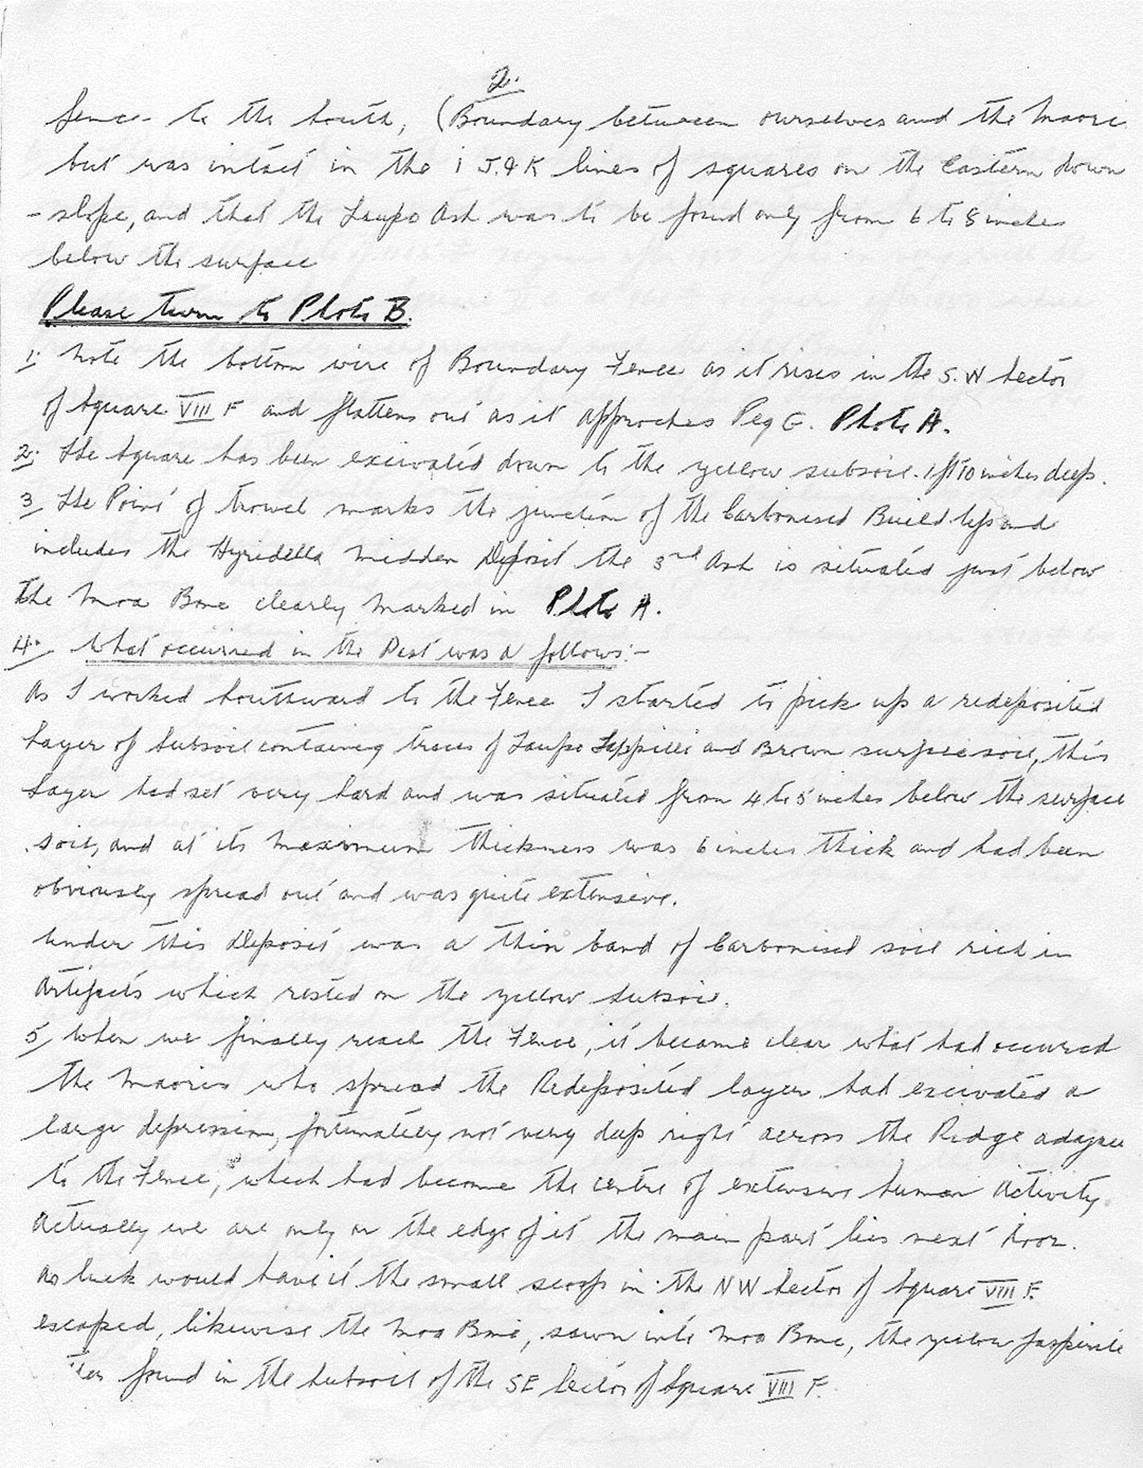 2.
fence to the South, (Boundary between ourselves and the Maoris
but was intact in the I J. & K lines of squares on the Eastern down
- slope, and that the Taupo Ash was to be found only from 6 to 8 inches
below the surface
Please turn to Photo B.
1. Note the bottom wire of Boundary Fence as it rises in the S.W Sector
of Square VIII F and flattens out as it approches Peg G. Photo A.
2. The Square has been excivated down to the yellow subsoil. 1 ft 10 inches deep.
3 The Point of trowel marks the junction of the Carbonised Build Up and
includes the Hyridella midden Deposit the 3rd Ash is situated just below
The Moa Bone clearly marked in Photo A.
4. What occurred in the Past was a follows:-
As I worked Southward to the Fence I started to pick up a redeposited
Layer of Subsoil containing traces of Taupo Lappilli and Brown surface soil, this
Layer had set very hard and was situated from 4 to 5 inches below the surface
soil, and at its Maximum thickness was 6 inches thick and had been
obviously spread out and was quite extensive.
Under this Deposit was a thin band of Carbonised soil rich in
Artifacts which rested on the yellow Subsoil.
5, When we finally reach the Fence, it became clear what had occurred
the Maoris who spread the Redeposited layer had excivated a
large depression, fortunately not very deep right across the Ridge
to the Fence, which had become the centre of extensive human Activity.
Actually we are only on the edge of it the main part lies next door.
As luck would have it the small scoop in the NW Sector of Square VIII F.
escaped, likewise the Moa Bone, sawn into Moa Bone, the yellow
found in the Subsoil of the SE Sector of Square VIII F.